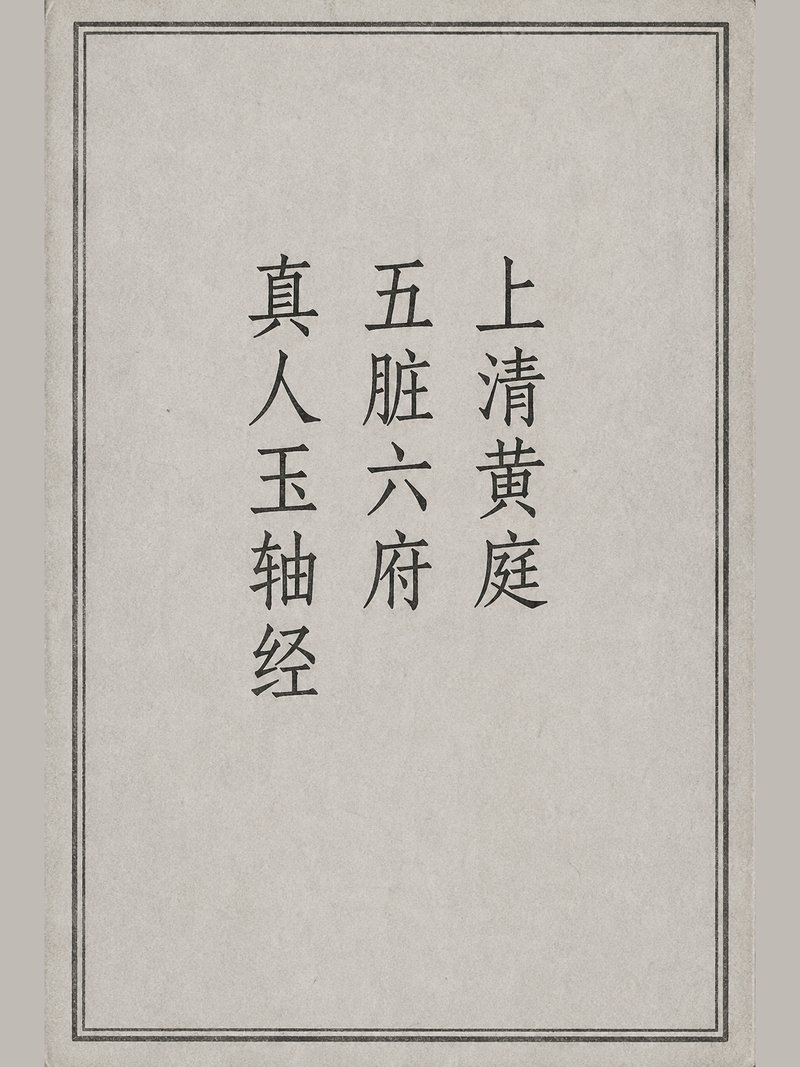 上清黄庭
五脏六府
真人玉轴经